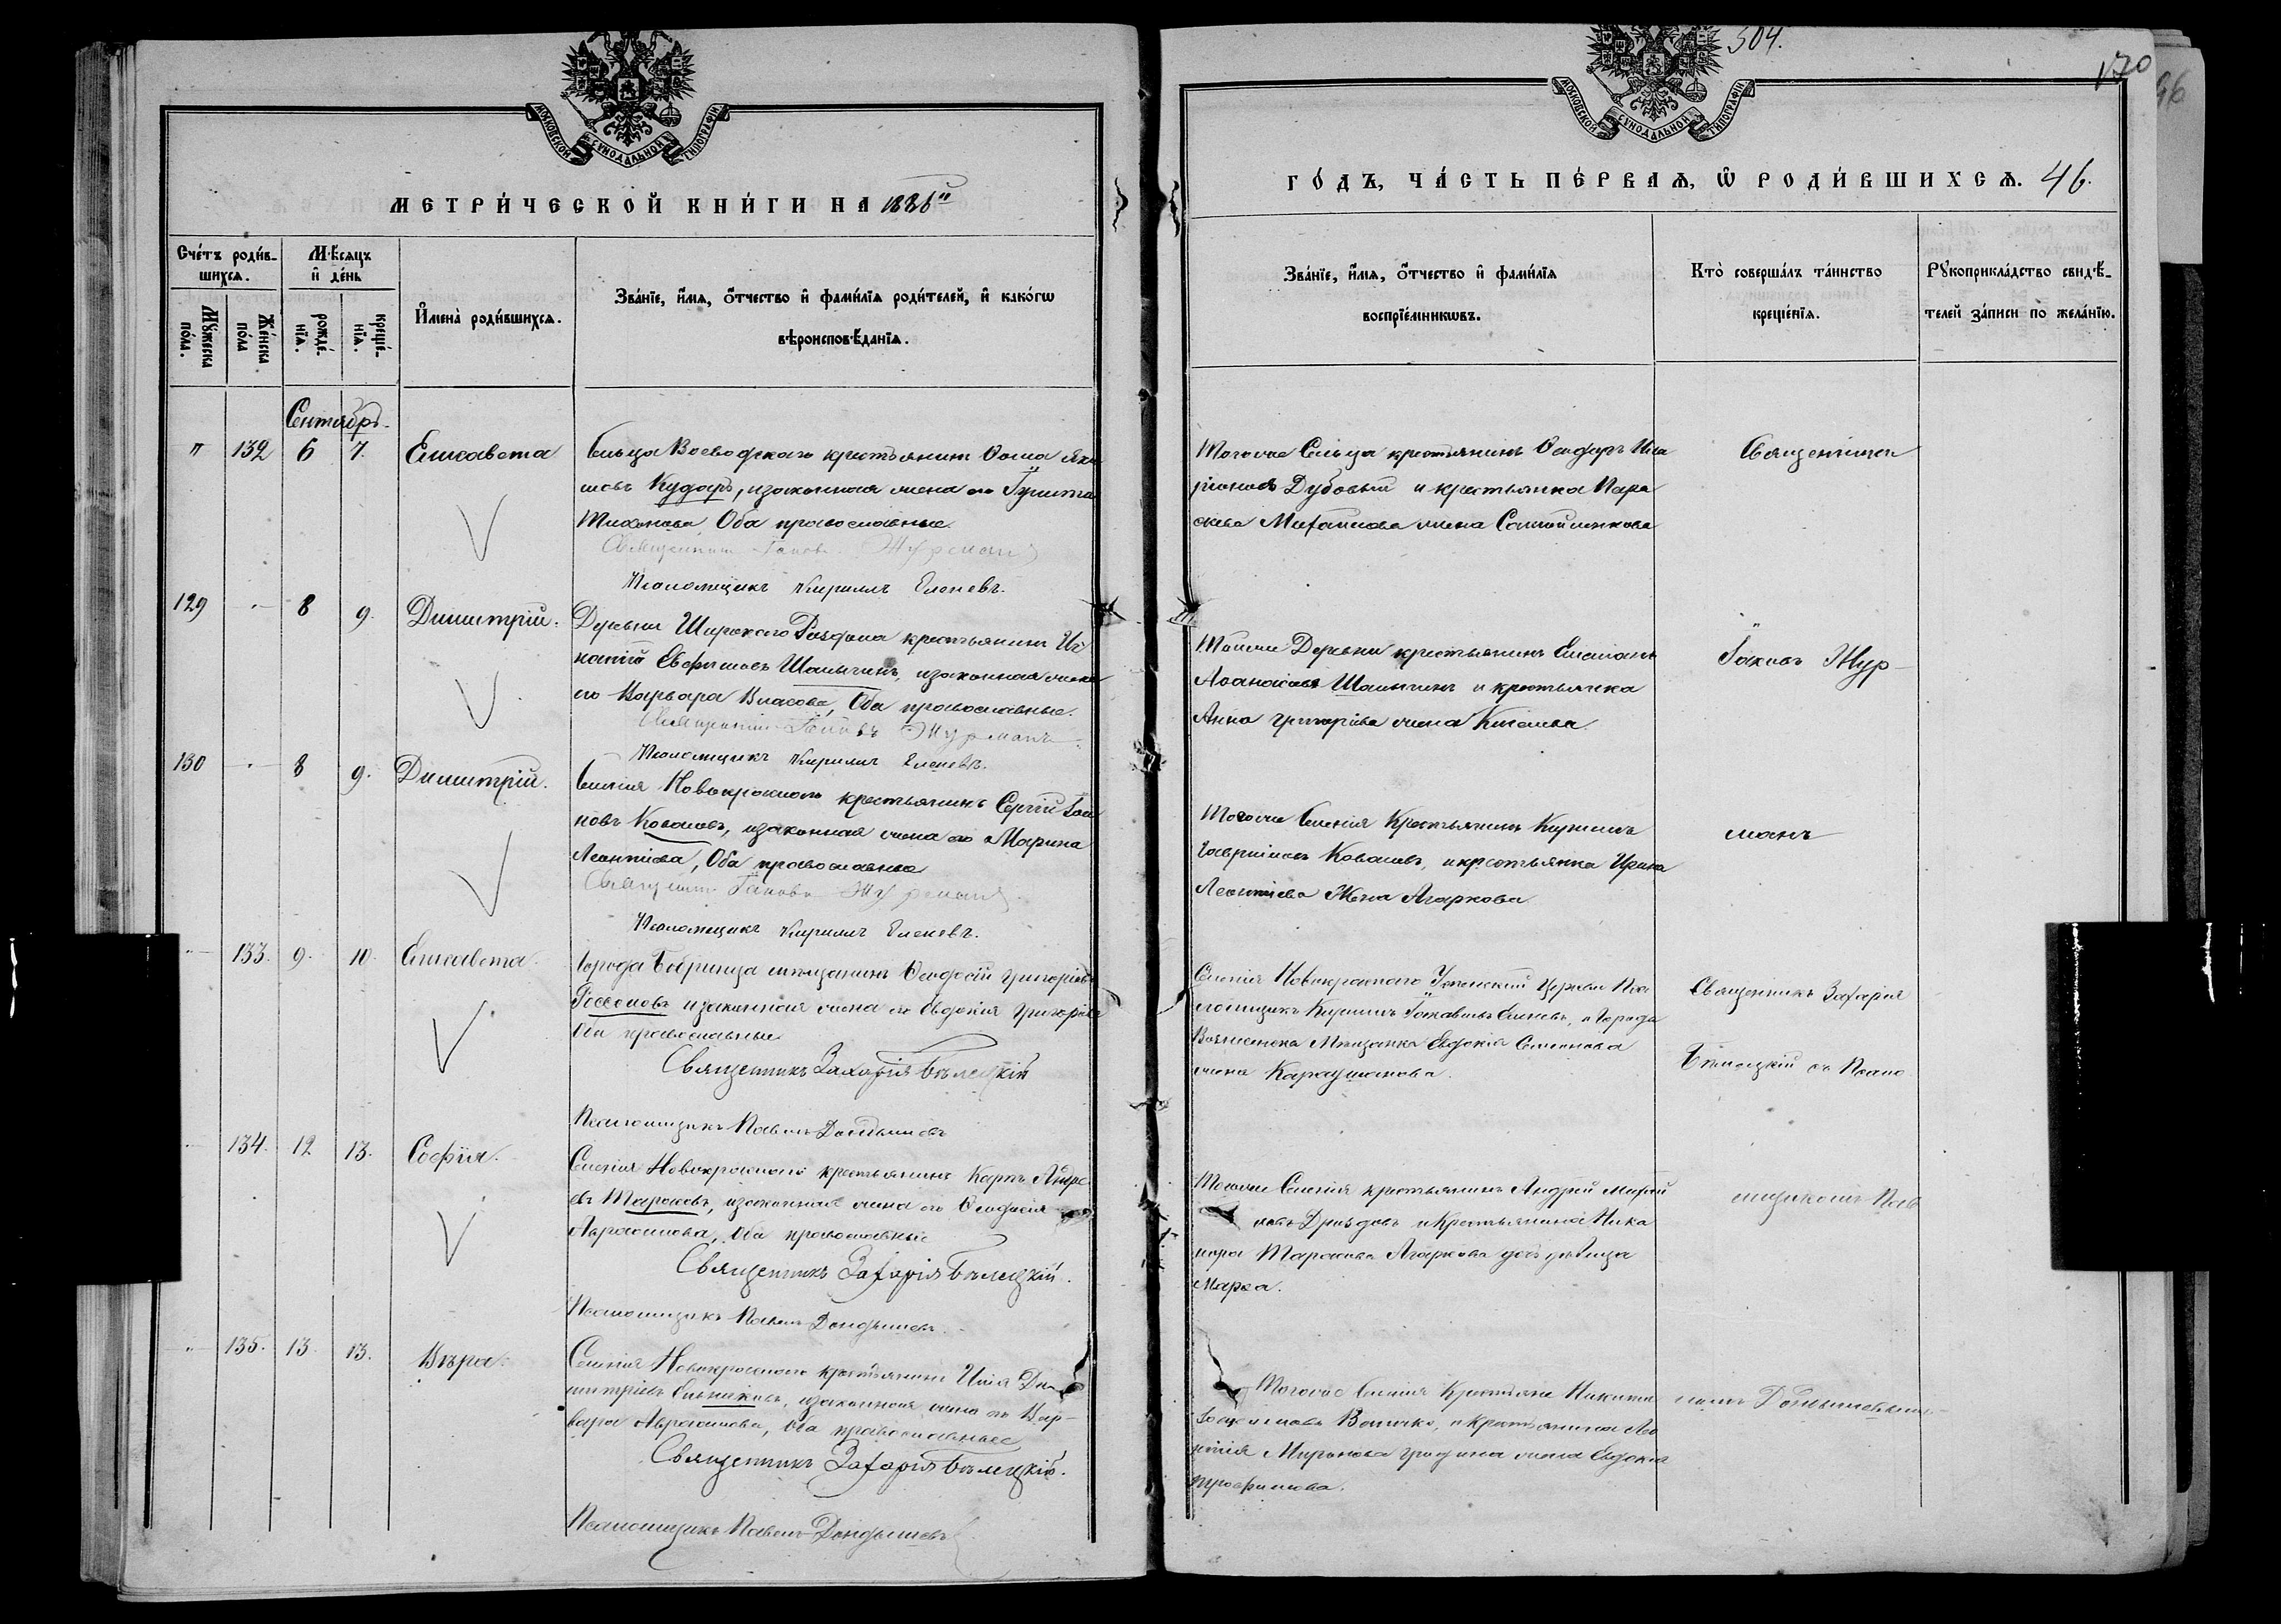 504.
170
46
МОСКОВСКОЙ СУНОДАЛЬНОЙ ТИПОГРАФІИ
МОСКОВСКОЙ СУНОДАЛЬНОЙ ТИПОГРАФІИ
МЕТРИ́ЧЕСКОЙ КНИ́ГИ НА 1886й
ГО́ДЪ, ЧА́СТЬ ПЕ́РВАЯ, Ѡ РОДИ́ВШИХСЯ. 46.
Сче́тъ роди́в-
шихся.
Мѣ́сяцъ
и де́нь
Мꙋ́жеска по́ла.
Же́нска по́ла
рожде́-нїя.
креще́-нїя.
И҆мена̀ роди́вшихся.
Зва́нїе, и҆́мя, ѻ҆́тчество и҆ фами́лїя роди́телей, и҆ како́гѡ
вѣроисповѣ́данїя.
Зва́нїе, и҆́мя, ѻ҆́тчество и҆ фами́лїя
воспрїе́мникѡвъ.
Кто̀ соверша́лъ та́инство
креще́нїя.
Рꙋкоприкла́дство свидѣ́-
телей за́писи по жела́нїю.
Сентябрь.
" 132 6 7. Елисавета
Сельца Воеводскаго крестьянинъ Ѳома Яки
мовъ Кударъ, и законная жена его
Тихонова, Оба православные.
Священникъ Іаковъ Журманъ
Псаломщикъ Кириллъ Еленевъ.
Тогоже Сельца крестьянинъ Ѳеодоръ Ила
ріоновъ Дубовый и крестьянка Пара
скева Михайлова жена Самойленкова
Священникъ
129 - 8 9. Димитрій.
Деревни Широкаго Раздола крестьянинъ Иг
натій Евфимовъ Шалыгинъ, и законная жена
его Варвара Власова, Оба православные.
Священникъ Іаковъ Журманъ
Псаломщикъ Кириллъ Еленевъ.
Тойже Деревни крестьянинъ Емеліанъ
Аѳанасіевъ Шалыгинъ и крестьянка
Анна Григоріева жена
Іаковъ Жур-
130 - 8 9. Димитрій.
Селенія Новокраснаго крестьянинъ Сергій
новъ Ковалевъ, и законная жена его Марина
Леонтіева, Оба православные
Священникъ Іаковъ Журманъ
Псаломщикъ Кириллъ Еленевъ.
Тогоже Селенія Крестьянинъ Кириллъ
Гавріиловъ Ковалевъ, и крестьянка Ирина
Леонтіева Жена Агаркова
манъ
- 133. 9. 10. Елисавета.
Города Бобринца мѣщанинъ Ѳеодосій Григоріевъ
и законная жена его Евдокія Григоріева
Оба православные
Священникъ Захарія Бѣлецкій
Псаломщикъ Павелъ
Селенія Новокраснаго Успенской Церкви Пса
ломщикъ Кириллъ Еленевъ, и Города
Вознесенска Мѣщанка Евдокія Семенова
жена
Священникъ Захарія
Бѣлецкій съ Псало
134. 12 13. Софія.
Селенія Новокраснаго крестьянинъ Карпъ Андре
евъ Тарасовъ, и законная жена его Ѳеодосія
Авраамова, Оба православные
Священникъ Захарія Бѣлецкій.
Псаломщикъ Павелъ
Тогоже Селенія крестьянинъ Андрей Михай
ловъ Дроздовъ и Крестьянина Ника
нора Тарасова Агаркова дочь дѣвица
Марѳа.
мщикомъ Пав
- 135. 13. 13. Вѣра.
Селенія Новокраснаго крестьянинъ Илія Ди
митріевъ, и законная жена его Вар-
вара Авраамова, Оба православные
Священникъ Захарія Бѣлецкій.
Псаломщикъ Павелъ
Тогоже Селенія Крестьяне Никита
и Крестьянина Ле
онтія Миронова жена Евдокія
Трофимова.
ломъ